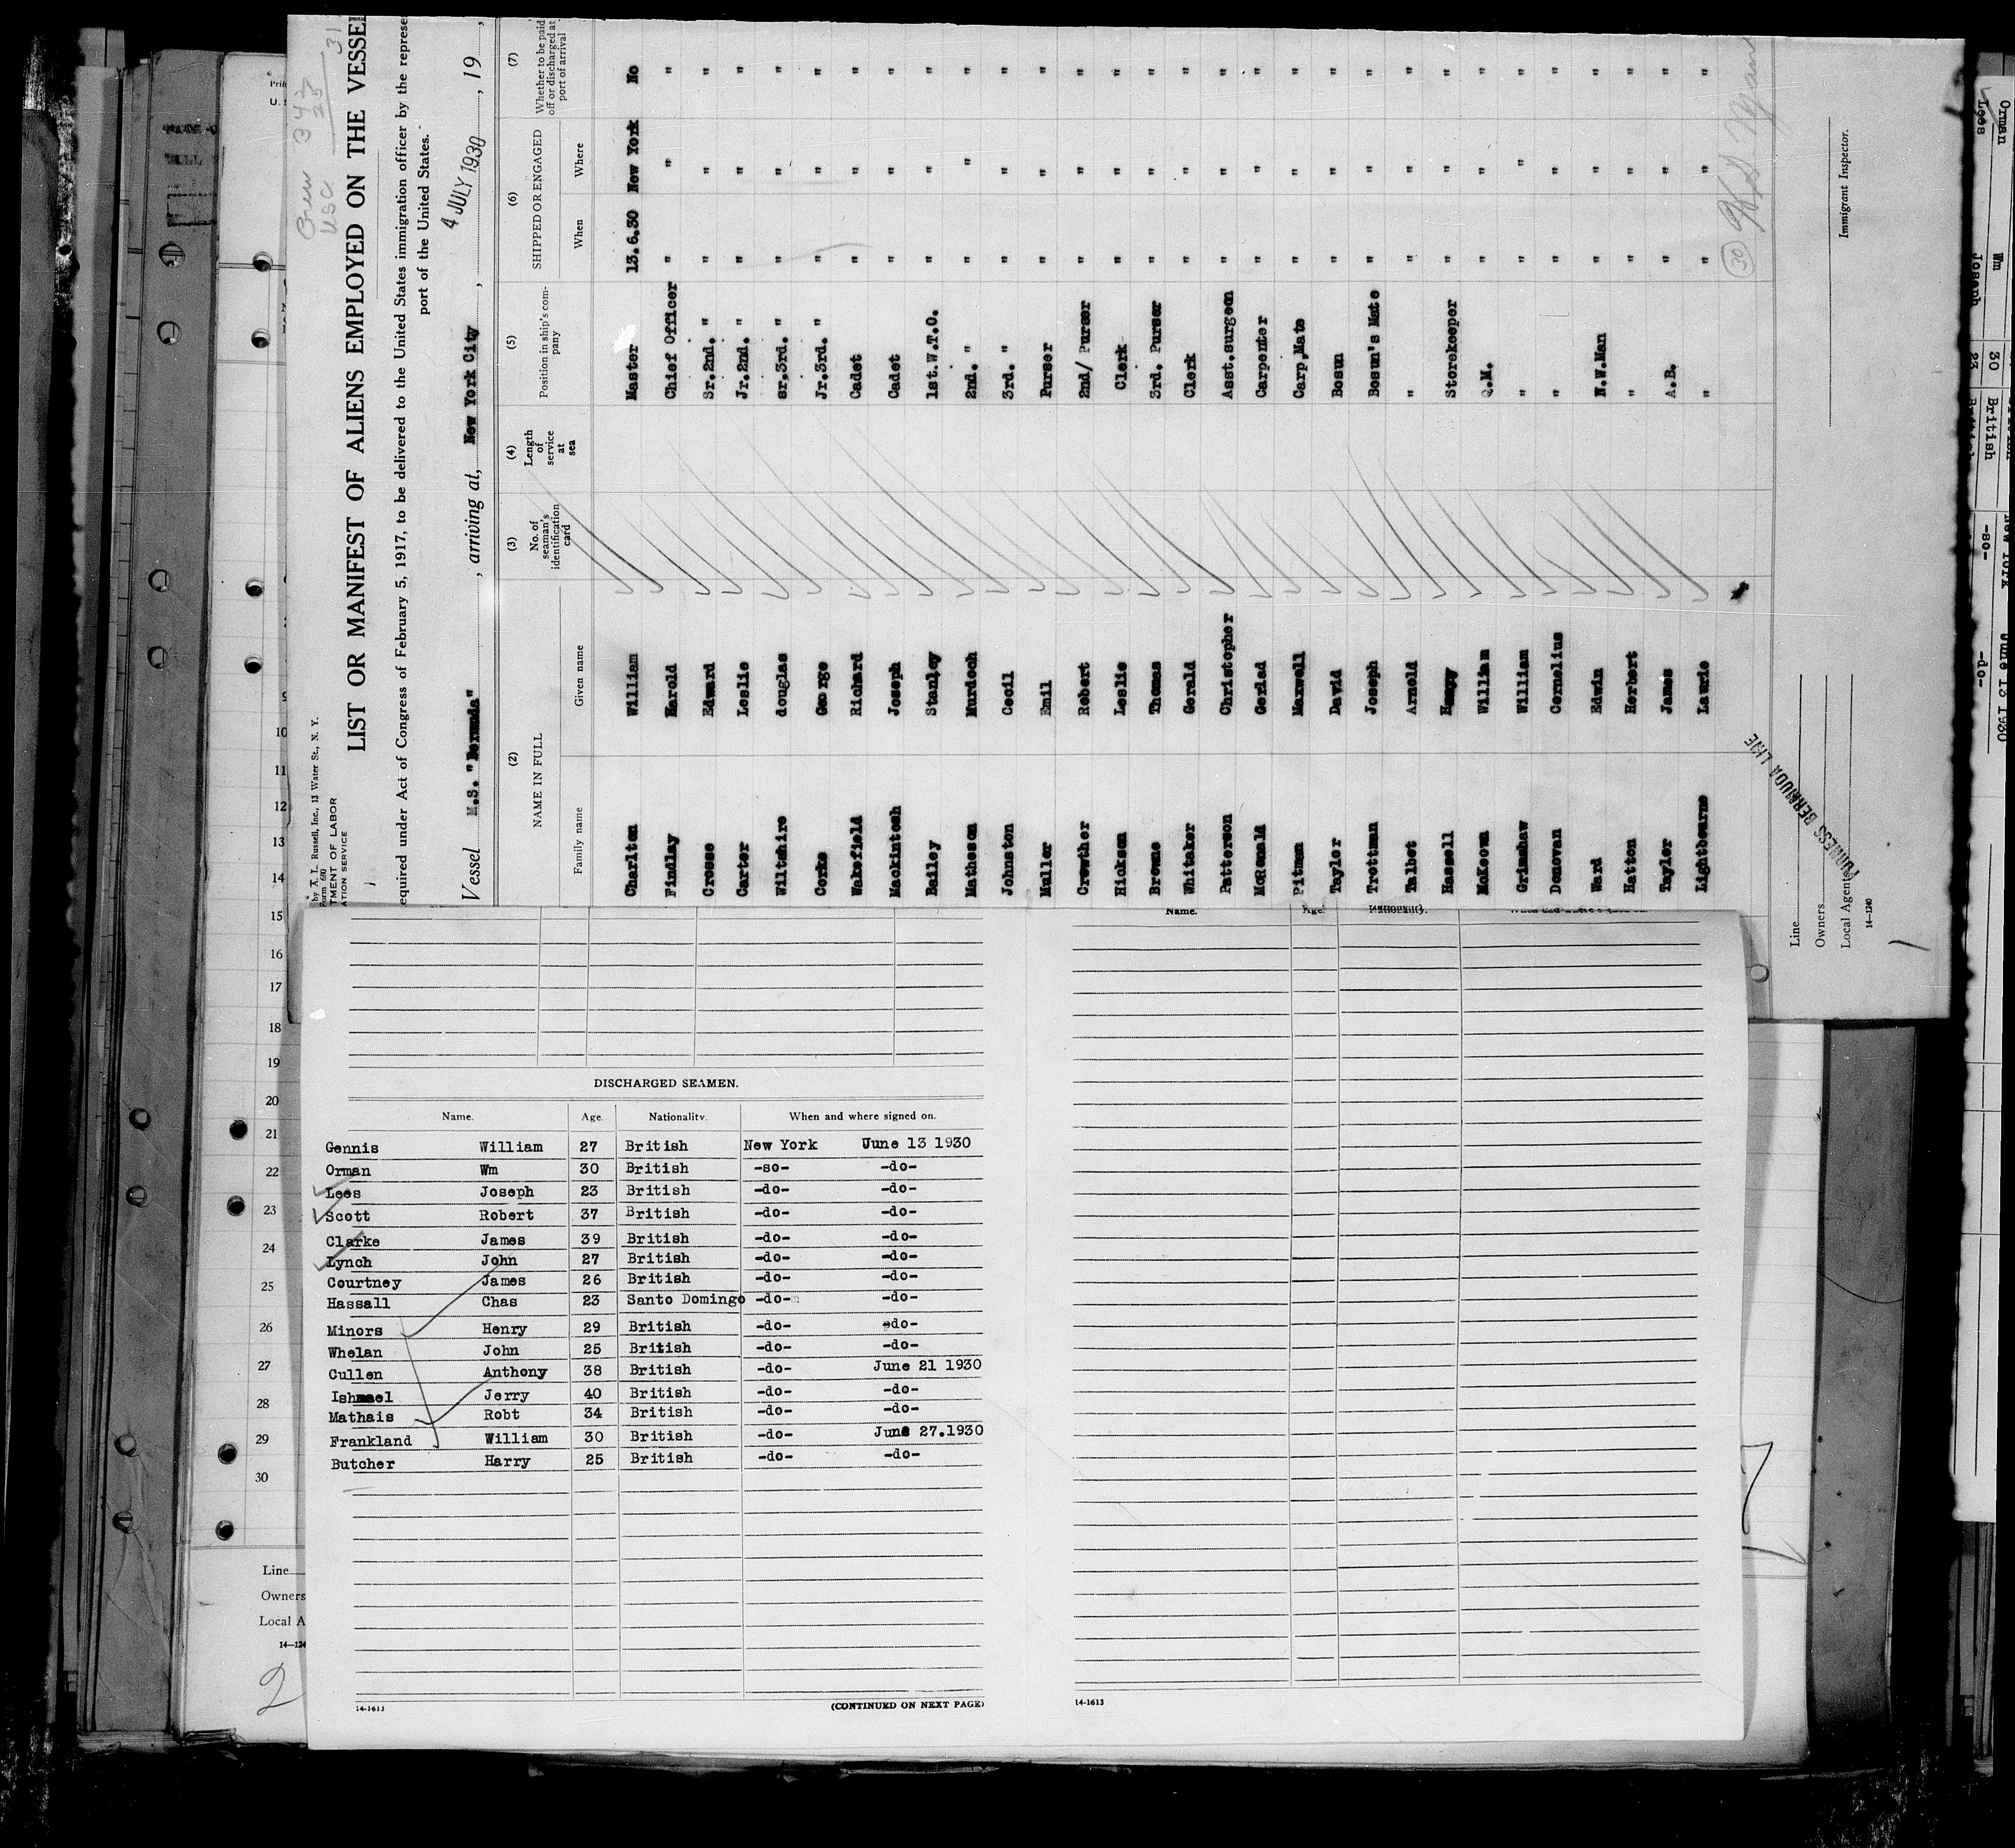 by A. L. Russell, Inc., 13 Water St., N. Y.
Form 680
TMENT OF LABOR
ATION SERVICE
Crew 342
USC 25
31
LIST OR MANIFEST OF ALIENS EMPLOYED ON THE VESSEL
equired under Act of Congress of February 5, 1917, to be delivered to the United States immigration officer by the represe
port of the United States.
Vessel M.S. "Bermuda", arriving at, New York City, 4 JULY 1930, 19
(2) (3) (4) (5) (6) (7)
NAME IN FULL No. of seaman's identification card Length of service at sea Position in ship's company SHIPPED OR ENGAGED Whether to be paid off or discharged at port of arrival
Family name Given name When Where
Charlton William Master 13.6.30 New York No
Findlay Harold Chief Officer " " "
Crosse Edward Sr.2nd. " " " "
Carter Leslie Jr.2nd. " " " "
Wiltshire douglas sr.3rd. " " " "
Corke George Jr.3rd. " " " "
Wakefield Richard Cadet " " "
Mackintosh Joseph Cadet " " "
Bailey Stanley 1st.W.T.O. " " "
Matheson Murdoch 2nd. " " " "
Johnston Cecil 3rd. " " " "
Muller Emil Purser " " "
Crowther Robert 2nd/ Purser " " "
Hickson Leslie Clerk " " "
Browne Thomas 3rd. Purser " " "
Whitaker Gerald Clerk " " "
Patterson Christopher Asst.surgeon " " "
McDonald Gerlad Carpenter " " "
Pitman Maxwell Carp.Mate " " "
Taylor David Bosun " " "
Trottman Joseph Bosun's Mate " " "
Talbot Arnold " " " "
Hassell Storekeeper " " "
McKeown William Q.M. " " "
Grimshaw William " " " "
Donovan Cornelius " " " "
Ward Edwin N.W.Man " " "
Hatton Herbert " " " "
Taylor James A.B. " " "
Lightbourne Laurie " " " "
(30)
Line
Owners
Local Agents
FURNESS BERMUDA LINE
Immigrant Inspector.
14—1240
Name. Age. Nationality.
DISCHARGED SEAMEN.
Name. Age. Nationality. When and where signed on.
Gennis William 27 British New York June 13 1930
Orman Wm 30 British -so- -do-
Lees Joseph 23 British -do- -do-
Scott Robert 37 British -do- -do-
Clarke James 39 British -do- -do-
Lynch John 27 British -do- -do-
Courtney James 26 British -do- -do-
Hassall Chas 23 Santo Domingo -do- -do-
Minors Henry 29 British -do- -do-
Whelan John 25 British -do- -do-
Cullen Anthony 38 British -do- June 21 1930
Ishmael Jerry 40 British -do- -do-
Mathais Robt 34 British -do- -do-
Frankland William 30 British -do- June 27.1930
Butcher Harry 25 British -do- -do-
14-1613
(CONTINUED ON NEXT PAGE)
14-1613
9
10
11
12
13
14
15
16
17
18
19
20
21
22
23
24
25
26
27
28
29
30
Line
Owners
Local A
14—124
2
Orman Wm 30 British -so- -do-
Lees Joseph 23